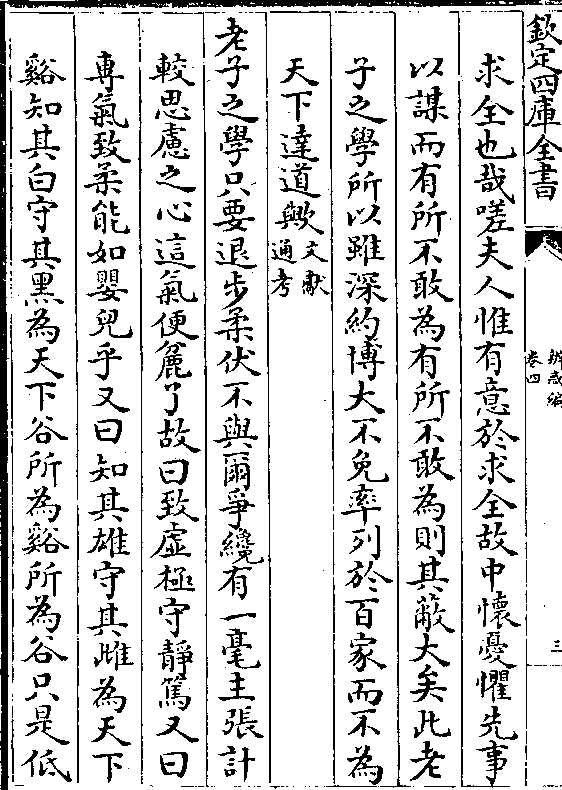 欽定四庫全書
辨惑編
卷四
三
求全也哉嗟夫人惟有意於求全故中懷憂懼先事
以謀而有所不敢為有所不敢為則其蔽大矣此老
子之學所以雖深約博大不免率列於百家而不為
天下達道歟文獻
通考
老子之學只要退步柔伏不與爾爭纔有一毫主張計
較思慮之心這氣便麄了故曰致虛極守靜篤又曰
專氣致柔能如嬰兒乎又曰知其雄守其雌為天下
谿知其白守其黑為天下谷所為谿所為谷只是低